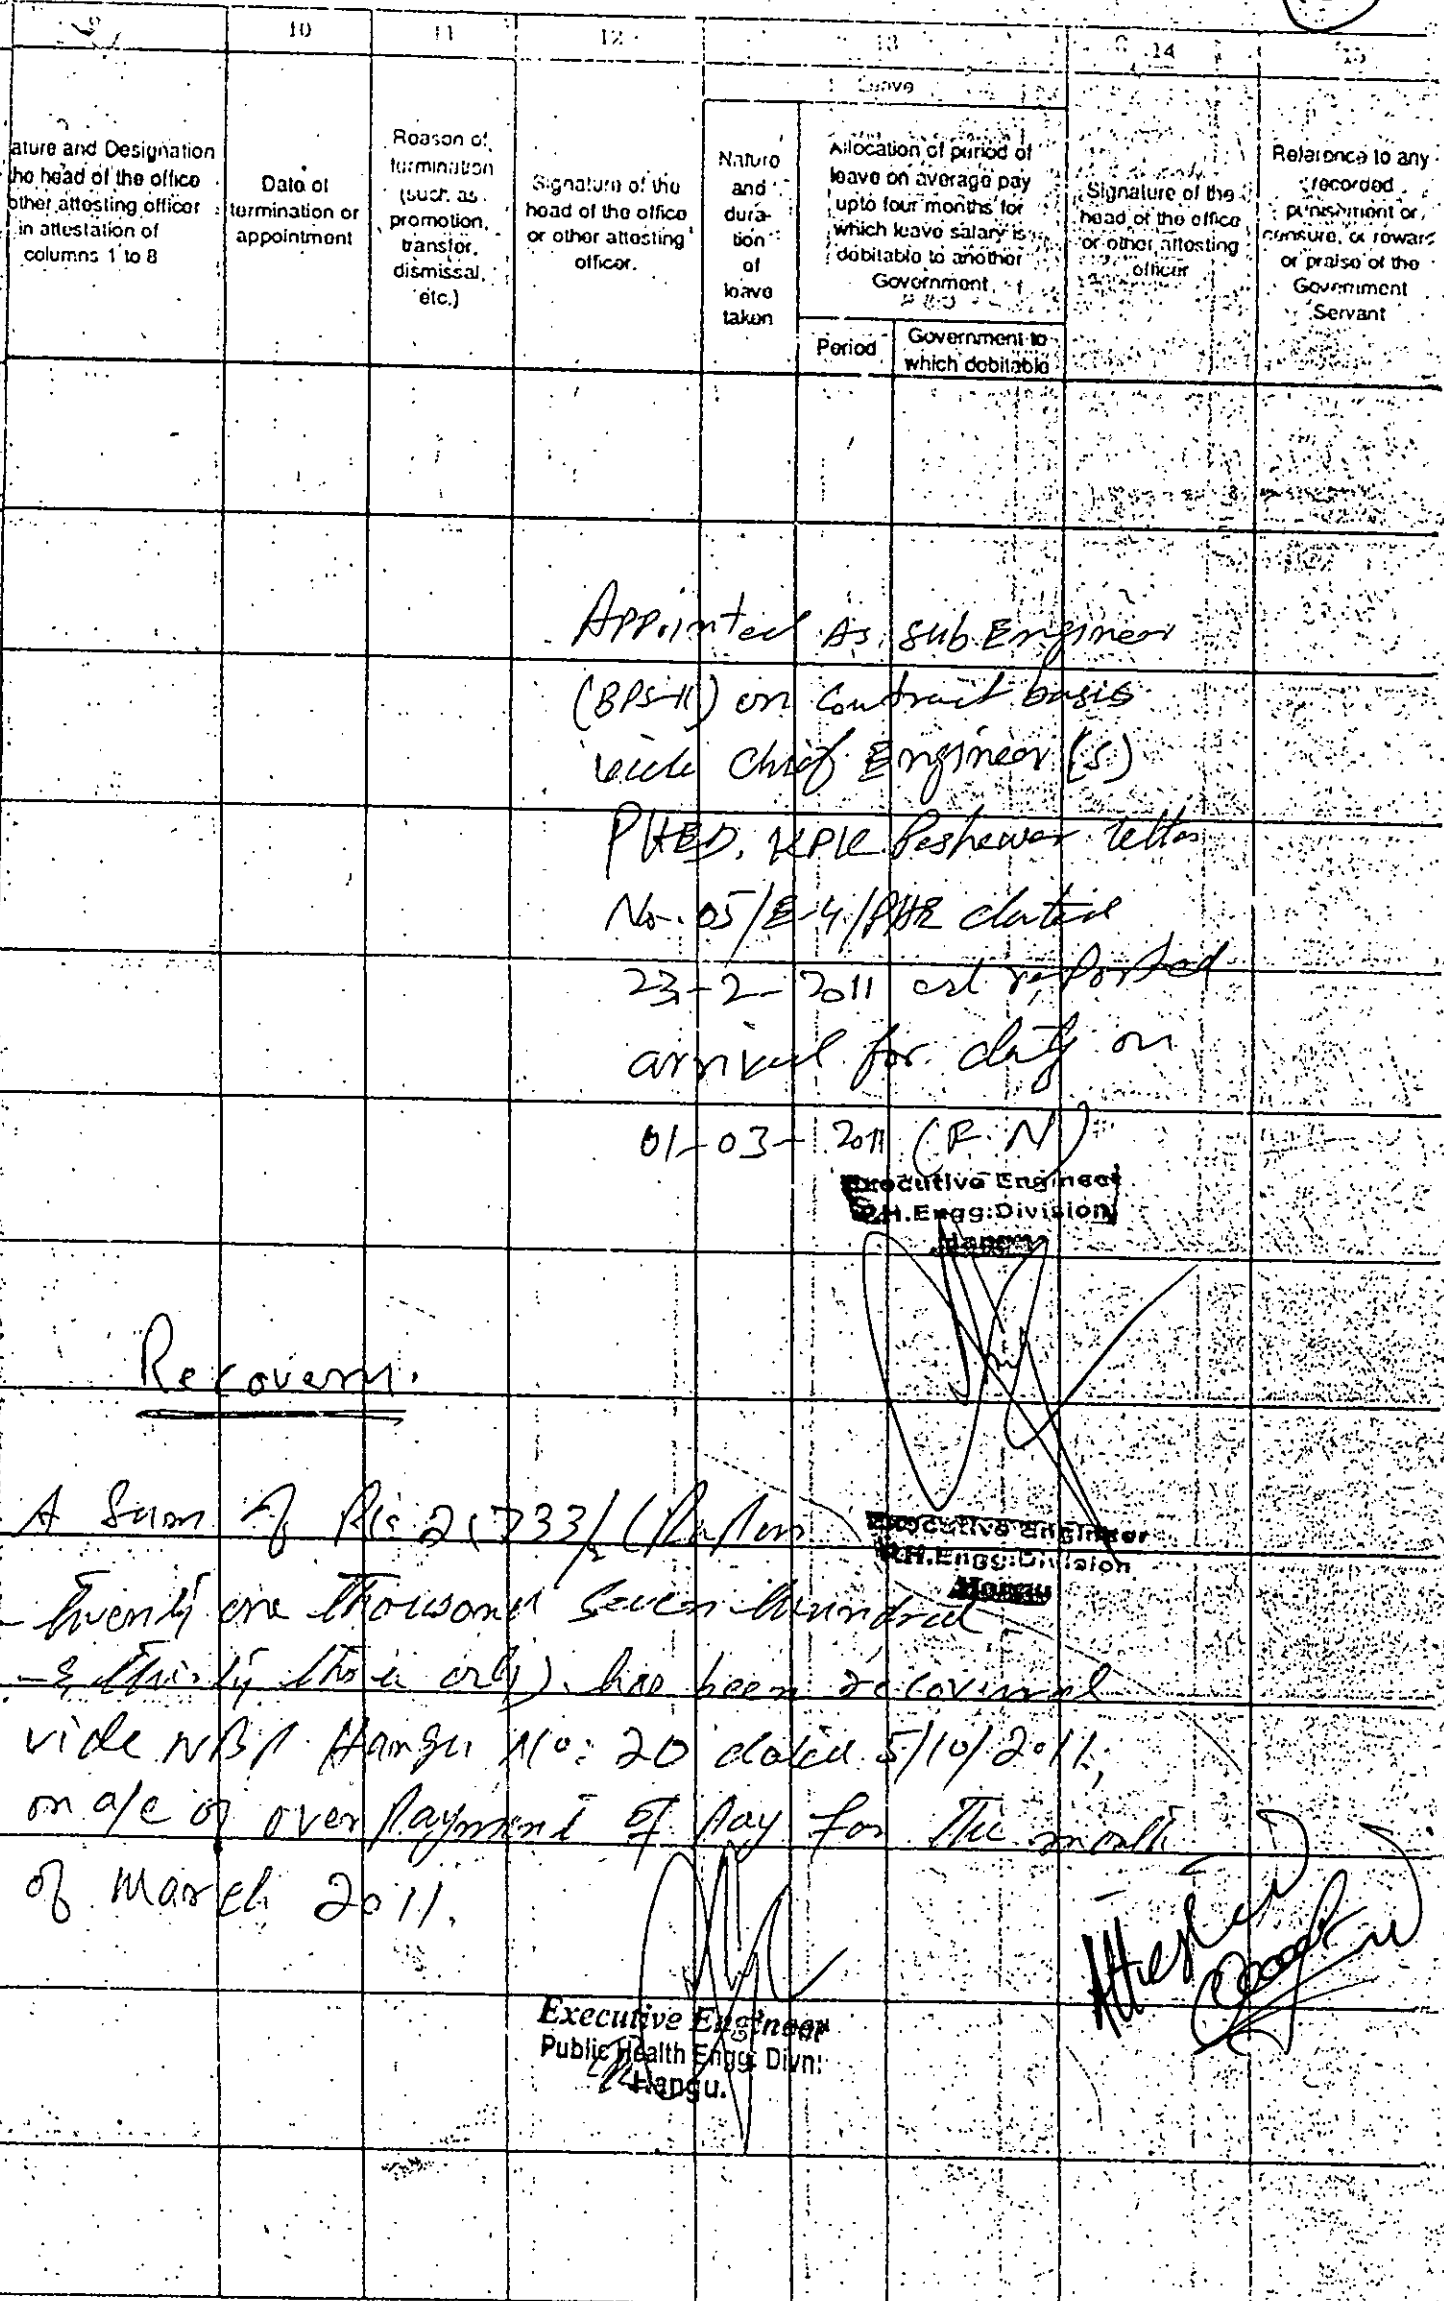 9 10 11 12 13 14 15
Leave
ature and Designation
the head of the office
other attesting officer
in attestation of
columns 1 to 8
Date of
termination or
appointment
Reason of
termination
(such as
promotion,
transfer,
dismissal,
etc.)
Signature of the
head of the office
or other attesting
officer.
Nature
and
dura-
tion
of
leave
taken
Allocation of period of
leave on average pay
upto four months for
which leave salary is
debitable to another
Government
Period
Government to
which debitable
Signature of the
head of the office
or other attesting
officer
Reference to any
recorded
punishment or
censure, or reward
or praise of the
Government
Servant
Appointed As Sub Engineer
(BPS-11) on Contract basis
vide Chief Engineer (S)
PHED, KPK Peshawar letter
No. 05/E-4/PHE dated
23-2-2011 and reported
arrival for duty on
01-03-2011 (F.N)
Executive Engineer
P.H.Engg:Division
Hangu
Recovery.
Executive Engineer
P.H.Engg:Division
Hangu
A Sum of Rs. 21733/- (Rupees
twenty one thousand Seven hundred
& thirty three only) has been recovered
vide NBP Hangu No: 20 dated 5/10/2011,
on a/c of over Payment of Pay for The month
of March 2011.
Attested
Executive Engineer
Public Health Engg: Divn:
Hangu.